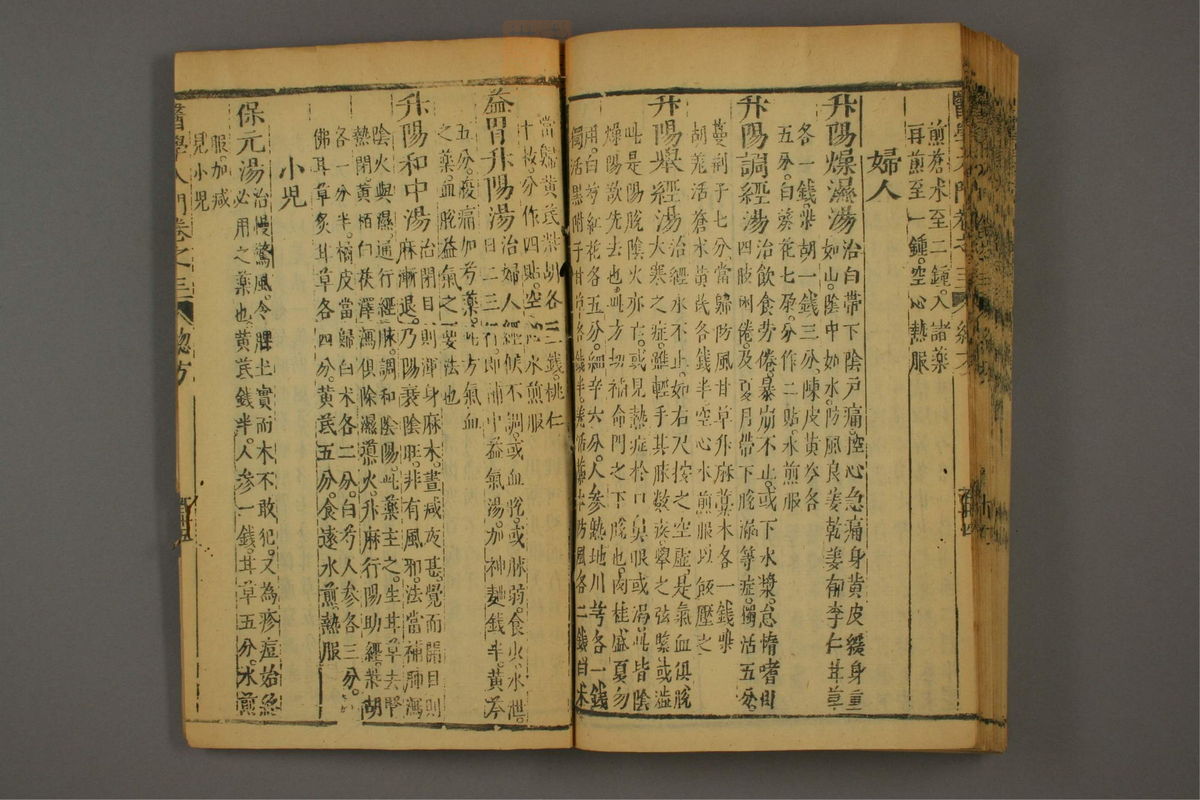 煎蒼朮至二鍾入諸藥
再煎至一鍾空心熱服
婦人
升陽燥濕湯治白帶下陰戶痛控心急痛身黃皮緩身重
如山陰中如水防風良姜乾姜郁李仁甘草
各一錢柴胡一錢三分陳皮黃芩各
五分白葵花七朶分作二貼水煎服
升陽調經湯治飲食勞倦暴崩不止或下水漿怠惰嗜臥
四肢困倦及夏月帶下脫漏等症獨活五分
蔓荊子七分當歸防風甘草升麻藁本各一錢柴
胡羌活蒼朮黃芪各錢半空心水煎服以飯壓之
升陽舉經湯治經水不止如右尺按之空虛是氣血俱脫
大寒之症雖輕手其脉數疾舉之弦緊或澁
此是陽脫陰火亦亡或見熱症於口鼻眼或渴此皆陰
燥陽欲先去也此方切補命門之下脫也肉桂盛夏勿
用白芍紅花各五分細辛六分人參熟地川芎各一錢
獨活黑附子甘草各錢半羌活藁本防風各二錢白朮
當歸黃芪柴胡各三錢桃仁
十枚分作四貼空心水煎服
益胃升陽湯治婦人經候不調或血脫或脉弱食少水泄
日二三行即補中益氣湯加神麯錢半黃芩
五分腹痛加芍藥此方氣血
之藥血脫益氣之要法也
升陽和中湯治閉目則渾身麻木晝減夜甚覺而開目則
麻漸退乃陽衰陰旺非有風邪法當補脾瀉
陰火與濕通行經脉調和陰陽此藥主之生甘草去腎
熱閉黃栢白茯澤瀉俱除濕導火升麻行陽助經柴胡
各一分半橘皮當歸白朮各二分白芍人參各三分
佛耳草炙甘草各四分黃芪五分食遠水煎熱服
小兒
保元湯治慢驚風令脾土實而木不敢犯又為疹痘始終
必用之藥也黃芪錢半人參一錢甘草五分水煎
服加減
見小兒
醫學入門卷之三 總方